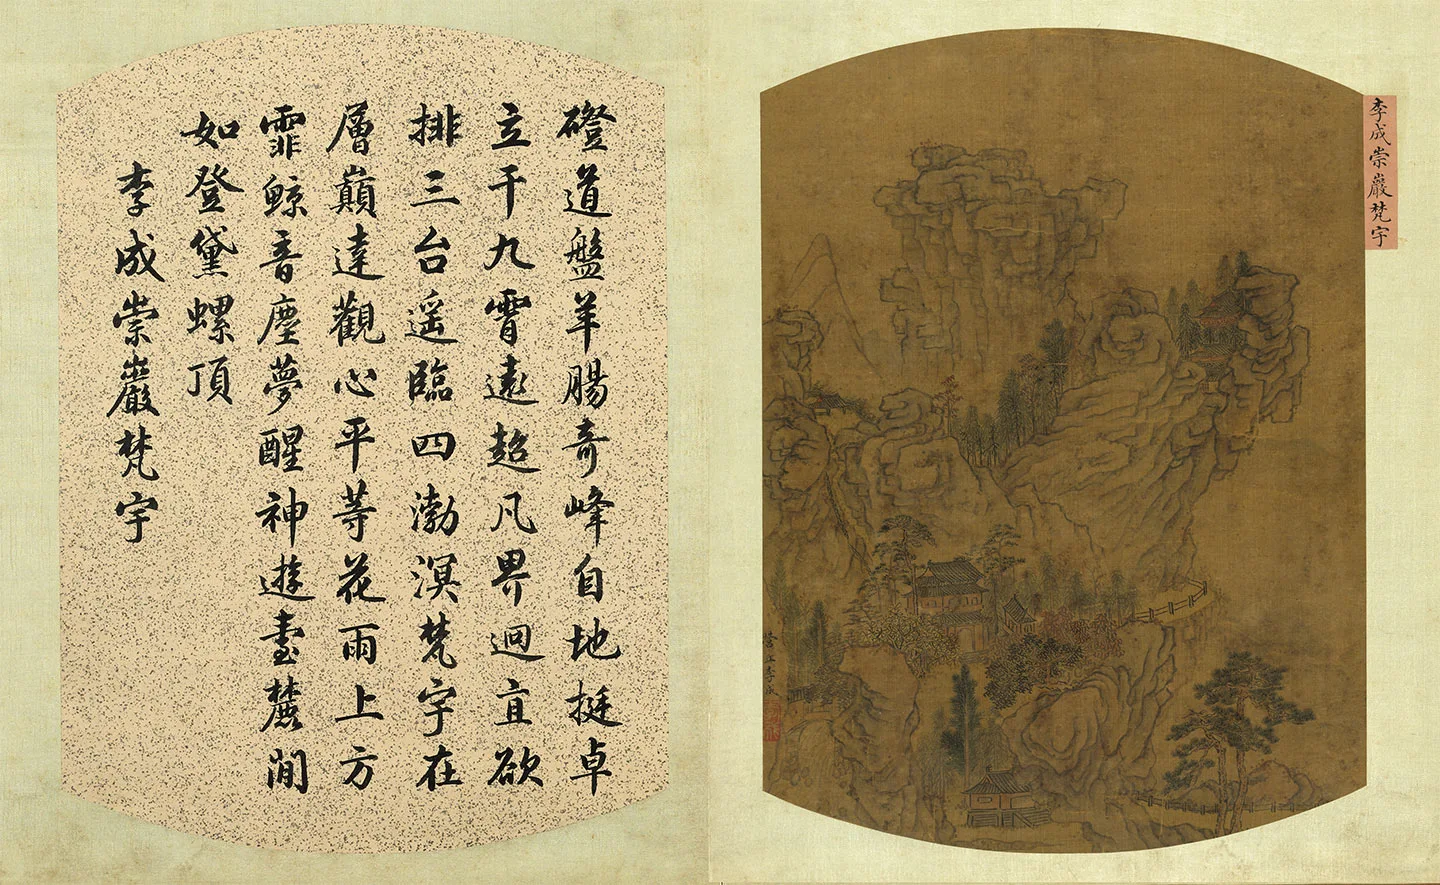 李成崇巖梵宇
營丘李成
磴道盤羊腸奇峰自地挺卓
立干九霄遠超凡界迥直欲
排三台遥臨四渤溟梵宇在
層巔達觀心平等花雨上方
霏鯨音塵夢醒神遊臺麓間
如登黛螺頂
李成崇巖梵宇